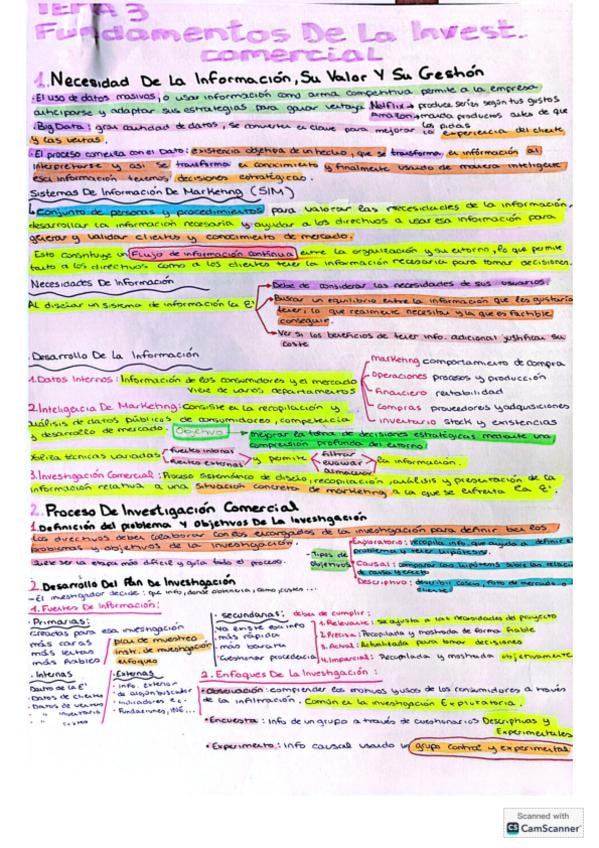 TEMA 3
Fundamentos De La Invest.
comercial
1. Necesidad De La Información, Su Valor Y Su Gestión
• El uso de datos masivos, o usar información como arma competitiva permite a la empresa
anticiparse y adaptar sus estrategias para ganar ventaja Netflix → produce series según tus gustos
Amazon → manda productos antes de que
los pidas
• Big Data: gran cantidad de datos, se convierten en clave para mejorar la experiencia del cliente
y las ventas.
• El proceso comienza con el Dato: existencia objetiva de un hecho, que se transforma en información al
interpretarse y así se transforma en conocimiento y finalmente usado de manera inteligente
esa información tenemos decisiones estratégicas.
Sistemas De Información De Marketing (SIM)
↳ Conjunto de personas y procedimientos para valorar las necesidades de la información,
desarrollar la información necesaria y ayudar a los directivos a usar esa información para
generar y validar clientes y conocimiento de mercado.
Esto constituye un Flujo de información continua entre la organización y su entorno, lo que permite
tanto a los directivos como a los clientes tener la información necesaria para tomar decisiones.
Necesidades De Información
AL diseñar un sistema de información la Eª
→ Debe de considerar las necesidades de sus usuarios.
→ Buscar un equilibrio entre la información que les gustaría
tener, lo que realmente necesitan y la que es factible
conseguir.
→ Ver si los beneficios de tener info. adicional justifican su
coste
Desarrollo De La Información
1. Datos Internos: Información de los consumidores y el mercado
viene de varios departamentos
marketing comportamiento de compra
operaciones procesos y producción
financiero rentabilidad
compras proveedores y adquisiciones
inventario stock y existencias
2. Inteligencia De Marketing: Consiste en la recopilación y
análisis de datos públicos de consumidores, competencia
y desarrollo de mercado. Objetivo → mejorar la toma de decisiones estratégicas mediante una
comprensión profunda del entorno.
técnicas variadas
fuentes internas
fuentes externas
y permite
filtrar
evaluar
almacenar
la información.
3. Investigación Comercial: Proceso sistemático de diseño, recopilación, análisis y presentación de la
información relativa a una situación concreta de marketing a la que se enfrenta la Eª.
2. Proceso De Investigación Comercial
1. Definición del problema Y Objetivos De La Investigación
Los directivos deben colaborar con los encargados de la investigación para definir bien los
problemas y objetivos de la investigación.
Suele ser la etapa más difícil y guía todo el proceso.
- Tipos de
objetivos
Exploratorio: recopila info. que ayuda a definir el
problema y tener hipótesis.
Causal: comparar las hipótesis sobre las relación
de causa y efecto
Descriptivo: describir cosas,
cliente
2. Desarrollo Del Plan De Investigación
- El investigador decide: que info, donde obtenerla, como, costes ...
1. Fuentes De Información:
• Primarias:
creados para esa investigación
más caras
más lentas
más fiables
plan de muestreo
instr. de investigación
enfoques
• secundarias: deben de cumplir:
ya existe esa info
más rápida
más barata
cuestionar procedencia
1. Relevante: se ajusta a las necesidades del proyecto
2. Precisa: Recopilada y mostrada de forma fiable
3. Actual: Actualizada para tomar decisiones
4. Imparcial: Recopilada y mostrada objetivamente
- Internas
Datos de la Eª
- Datos de clientes
- Datos de ventas
- " " inventario
- " " costes
- Externas
- Info. exterior
de algún buscador
- Indicadores ec.
- Fundaciones, INE...
2. Enfoques De La Investigación:
• Observación: comprender los motivos y usos de los consumidores a través
de la infiltración. Común en la investigación Exploratoria.
• Encuesta: Info de un grupo a través de cuestionarios Descriptivas y
Experimentales
• Experimento: Info causal usando un grupo control y experimental
Scanned with
CS CamScanner